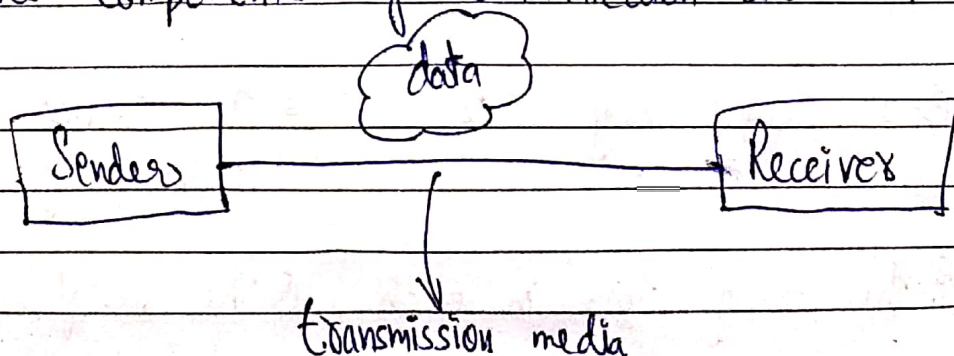 data
Sender
Receiver
transmission media